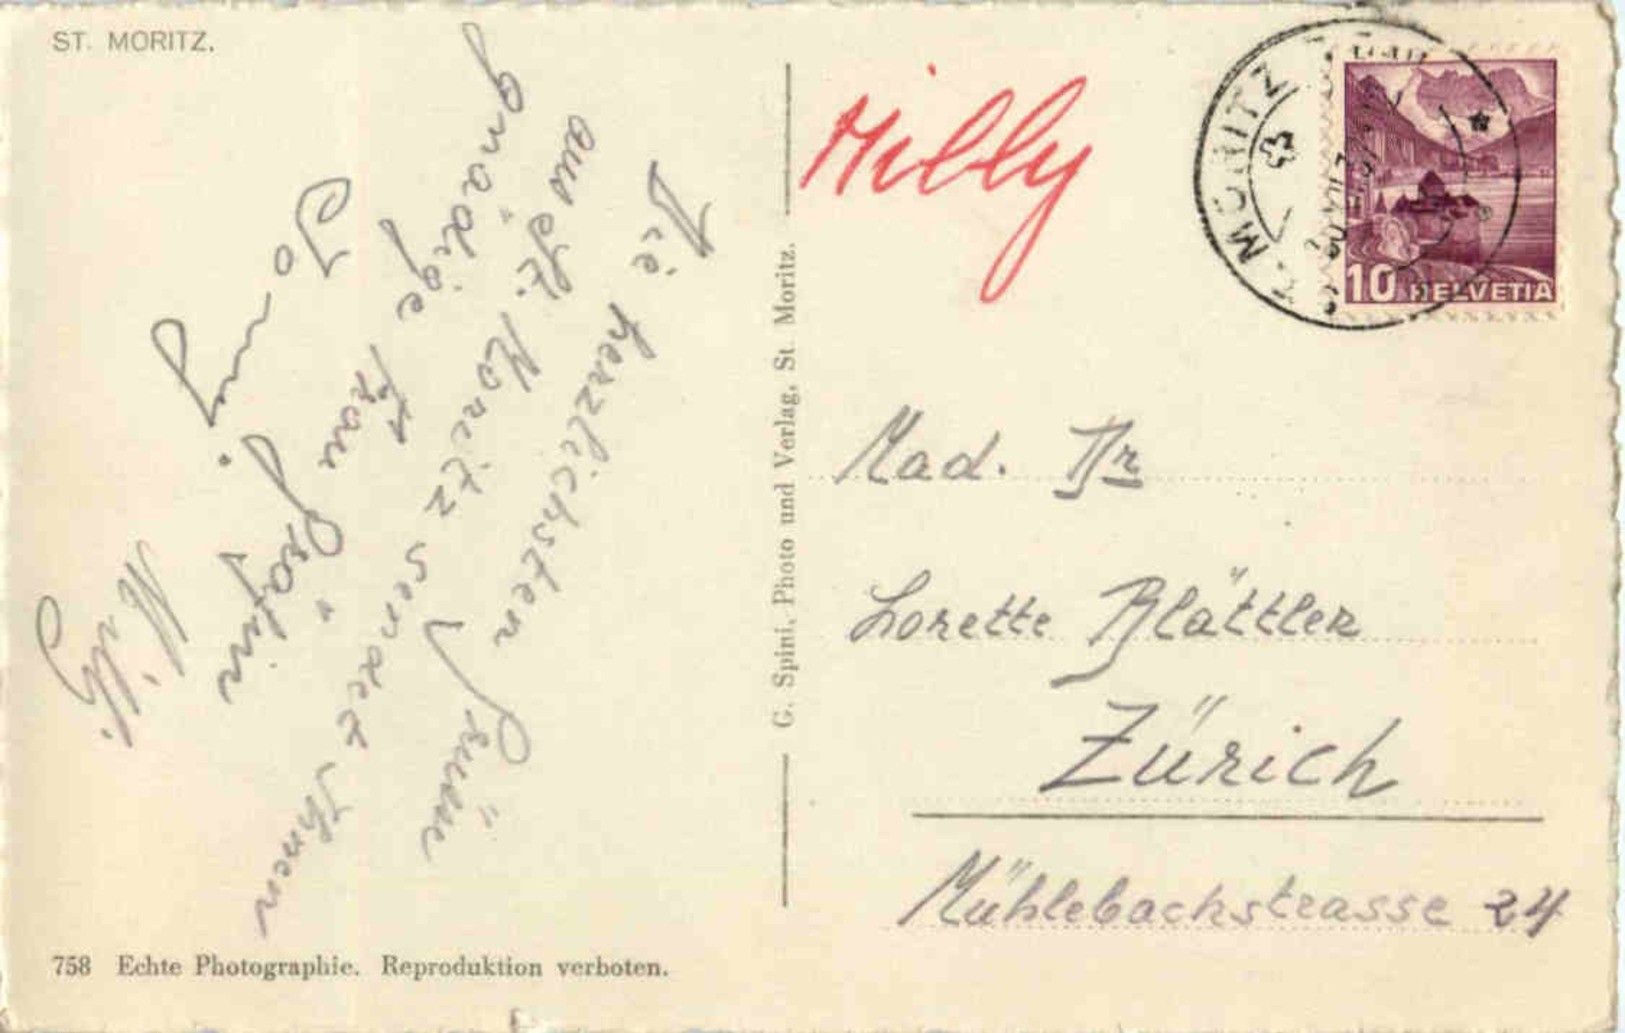 ST. MORITZ.
Die herzlichsten Grüsse
aus St. Moritz sendet Ihnen
gnädige Frau Gräfin
Ihr
Willy
G. Spini, Photo und Verlag, St. Moritz.
Willy
MORITZ
10 HELVETIA
Mad. Dr
Lorette Blättler
Zürich
Mühlebachstrasse 24
758 Echte Photographie. Reproduktion verboten.